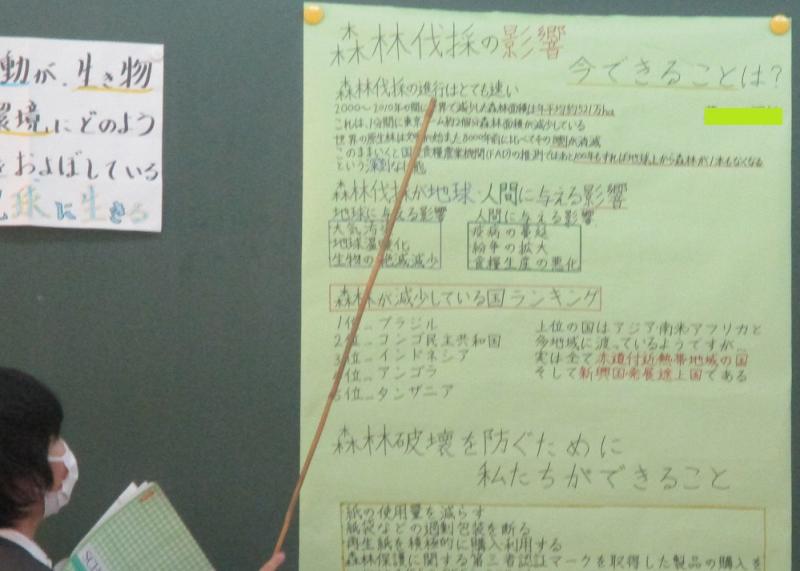 動が、生き物
環境にどのよう
およぼしている
球に生きる
森林伐採の影響
今できることは?
森林伐採の進行はとても速い
2000〜2010年の間に世界で減少した森林面積は年平均約521万ha
これは、1分間に東京ドーム約2個分森林面積が減少している
世界の原生林は文明が始まる8000年前に比べてその8割が消滅
このままいくと国連食糧農業機関(FAO)の推測ではあと100年もすれば地球上から森林が1本もなくなる
という深刻な
森林伐採が地球・人間に与える影響
地球に与える影響
大気汚
地球温暖化
生物の絶滅減少
人間に与える影響
疫病の蔓延
紛争の拡大
食糧生産の悪化
森林が減少している国ランキング
1位 ブラジル
2位 コンゴ民主共和国
3位 インドネシア
4位 アンゴラ
5位 タンザニア
上位の国はアジア・南米アフリカと
多地域に渡っているようですが、
実は全て赤道付近熱帯地域の国
そして新興国・発展途上国である
森林破壊を防ぐために
私たちができること
紙の使用量を減らす
紙袋などの過剰包装を断る
再生紙を積極的に購入利用する
森林保護に関する第三者認証マークを取得した製品の購入を